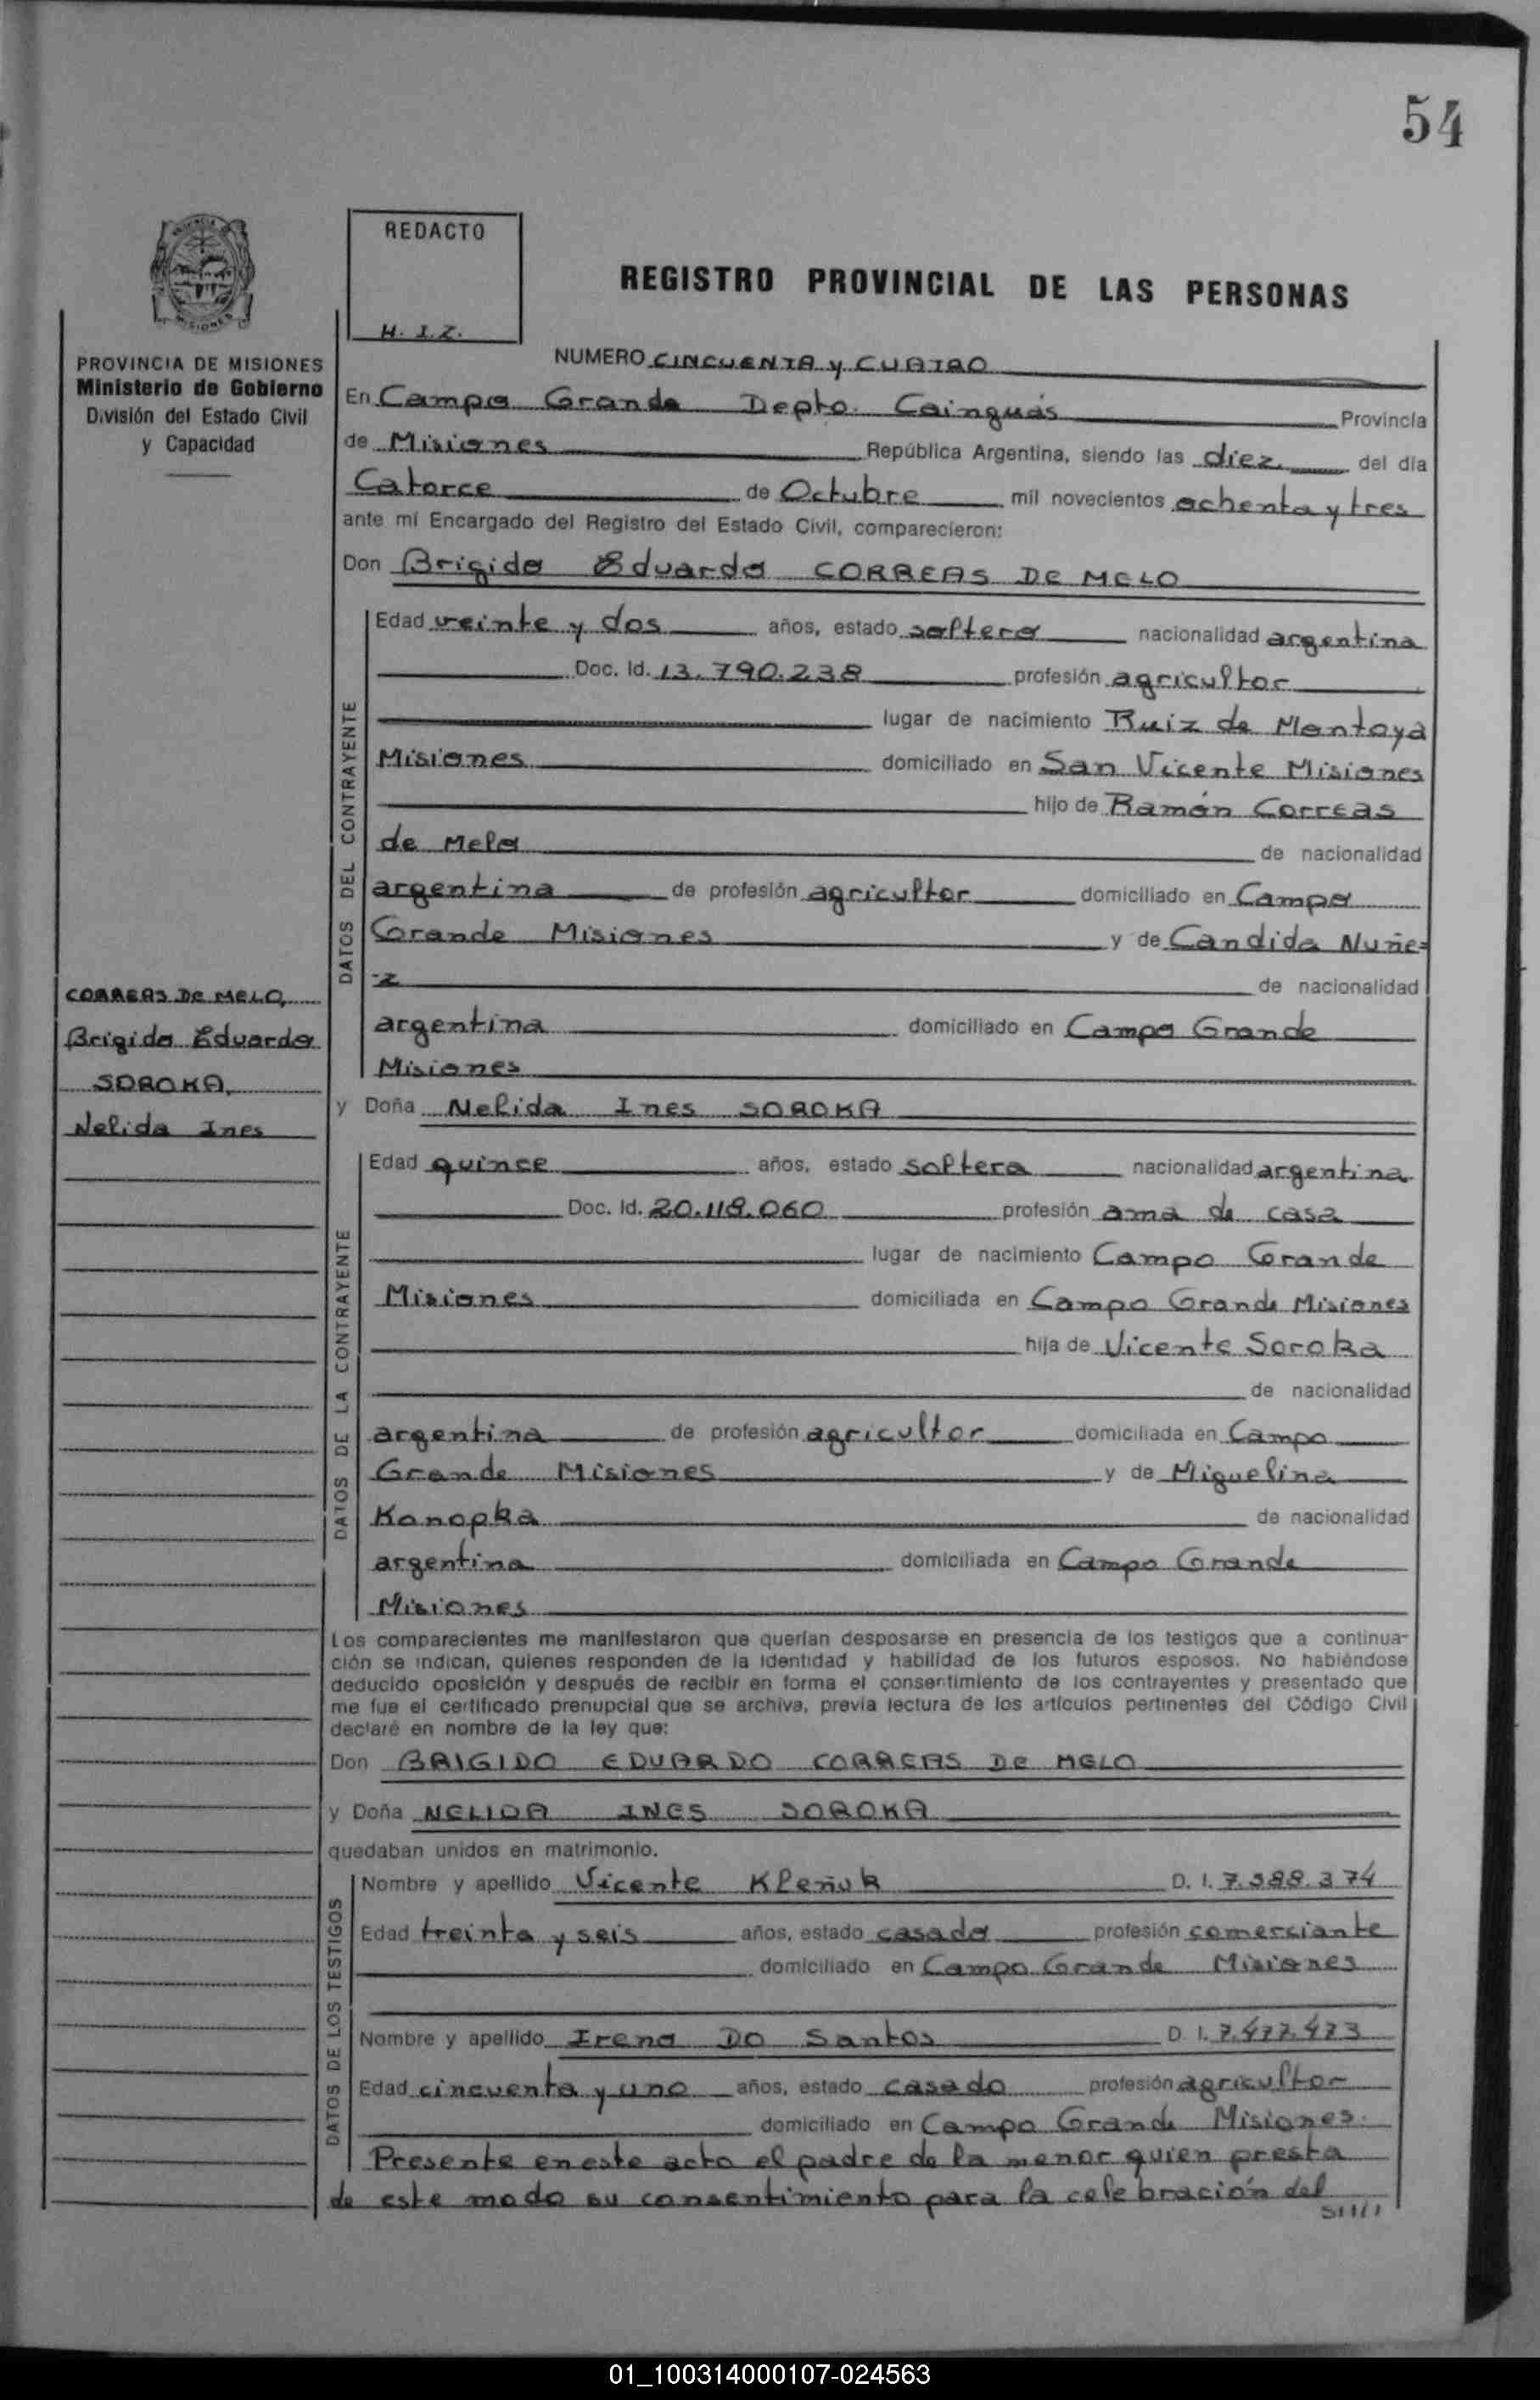 54
REDACTO
H. I. Z.
REGISTRO PROVINCIAL DE LAS PERSONAS
PROVINCIA DE MISIONES
Ministerio de Gobierno
División del Estado Civil
y Capacidad
NUMERO CINCUENTA y CUATRO
En Campo Grande Depto. Cainguás Provincia
de Misiones República Argentina, siendo las diez del día
Catorce de Octubre mil novecientos ochenta y tres
ante mí Encargado del Registro del Estado Civil, comparecieron:
Don Brigido Eduardo CORREAS DE MELO
DATOS DEL CONTRAYENTE
Edad veinte y dos años, estado soltero nacionalidad argentina
Doc. Id. 13.790.238 profesión agricultor
lugar de nacimiento Ruiz de Montoya
Misiones domiciliado en San Vicente Misiones
hijo de Ramón Correas
de Melo de nacionalidad
argentina de profesión agricultor domiciliado en Campo
Grande Misiones y de Candida Nuñe=
-z de nacionalidad
argentina domiciliado en Campo Grande
Misiones
CORREAS DE MELO,
Brigido Eduardo
SOROKA,
Nelida Ines
y Doña Nelida Ines SOROKA
DATOS DE LA CONTRAYENTE
Edad quince años, estado soltera nacionalidad argentina
Doc. Id. 20.118.060 profesión ama de casa
lugar de nacimiento Campo Grande
Misiones domiciliada en Campo Grande Misiones
hija de Vicente Soroka
de nacionalidad
argentina de profesión agricultor domiciliada en Campo
Grande Misiones y de Miguelina
Konopka de nacionalidad
argentina domiciliada en Campo Grande
Misiones
Los comparecientes me manifestaron que querían desposarse en presencia de los testigos que a continua-
ción se indican, quienes responden de la identidad y habilidad de los futuros esposos. No habiéndose
deducido oposición y después de recibir en forma el consentimiento de los contrayentes y presentado que
me fue el certificado prenupcial que se archiva, previa lectura de los artículos pertinentes del Código Civil
declaré en nombre de la ley que:
Don BRIGIDO EDUARDO CORREAS DE MELO
y Doña NELIDA INES SOROKA
quedaban unidos en matrimonio.
DATOS DE LOS TESTIGOS
Nombre y apellido Vicente Kleñuk D. I. 7.588.374
Edad treinta y seis años, estado casado profesión comerciante
domiciliado en Campo Grande Misiones
Nombre y apellido Ireno Do Santos D. I. 7.477.473
Edad cincuenta y uno años, estado casado profesión agricultor
domiciliado en Campo Grande Misiones.
Presente en este acto el padre de la menor quien presta
de este modo su consentimiento para la celebración del
01_100314000107-024563